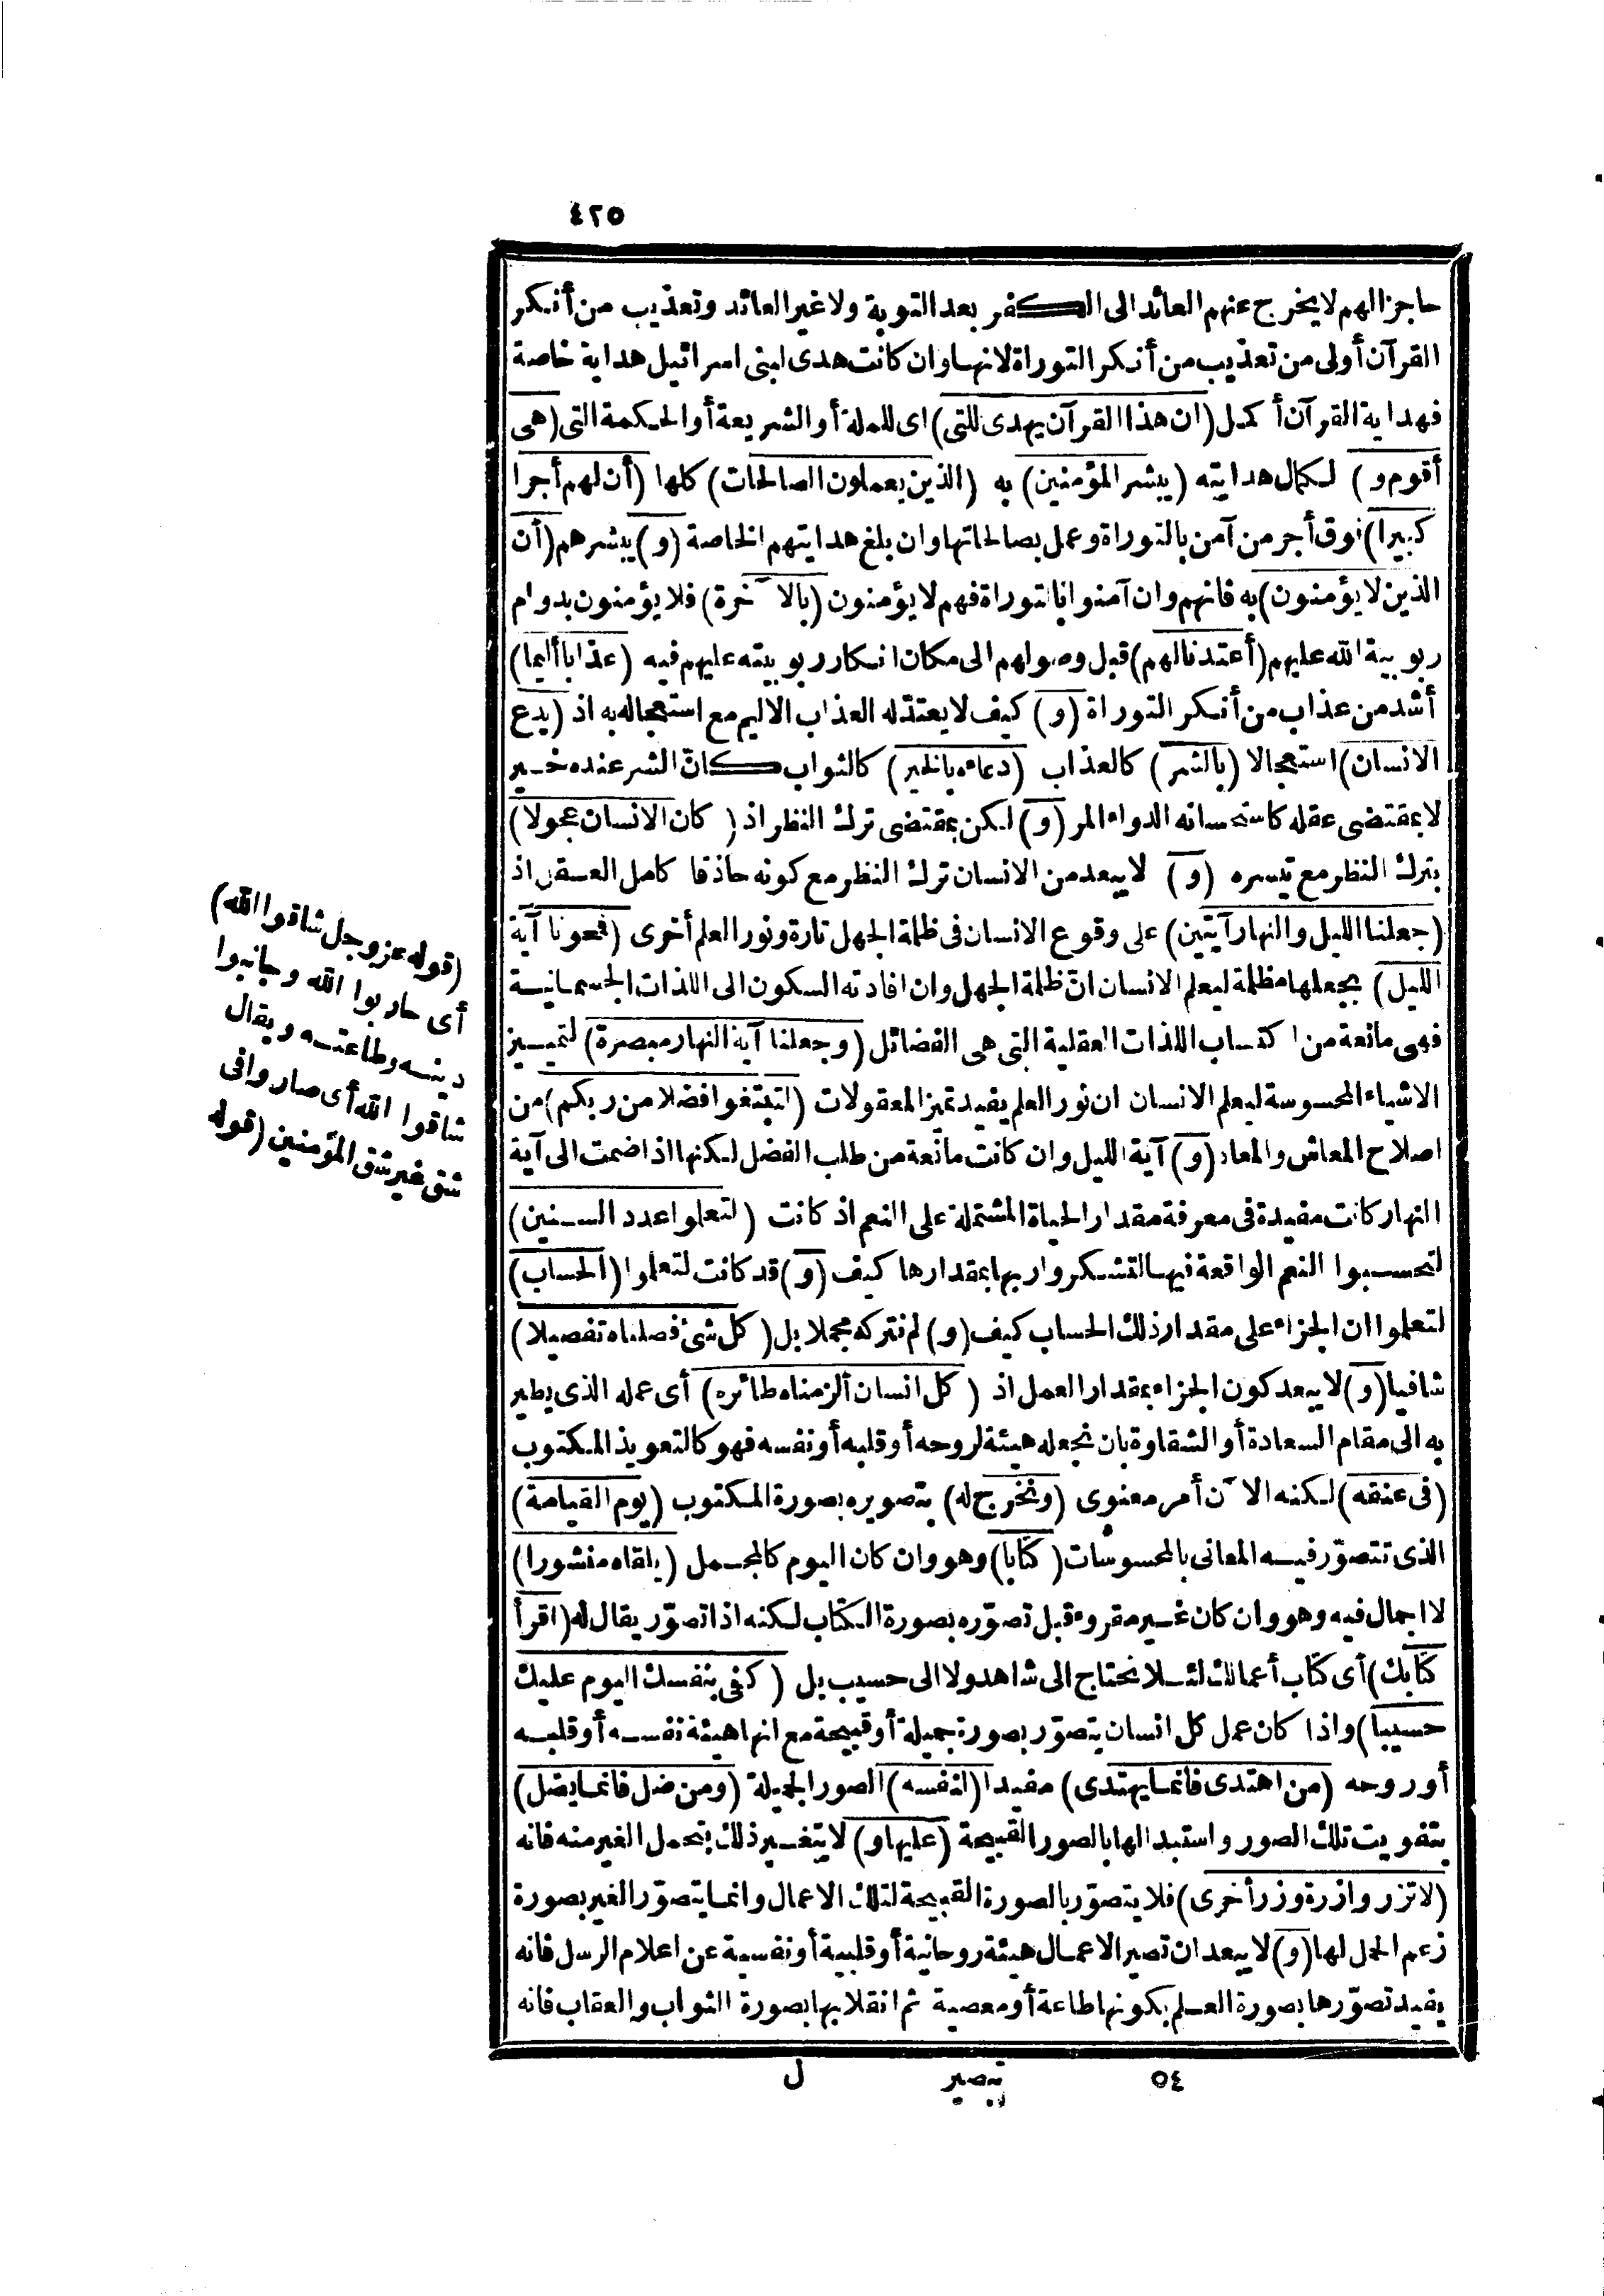 ٤٢٥
حاجزا لهم لا يخرج عنهم العائد الى الكفر بعد التوبة ولا غير العائد وتعذيب من أنكر
القرآن أولى من تعذيب من أنكر التوراة لانها وان كانت هدى لبنى اسرائيل هداية خاصة
فهداية القرآن أكمل (ان هذا القرآن يهدى للتى) اى للملة أو الشريعة أو الحكمة التى (هى
أقوم و) لكمال هدايته (يبشر المؤمنين) به (الذين يعملون الصالحات) كلها (أن لهم أجرا
كبيرا) فوق أجر من آمن بالتوراة وعمل بصالحاتها وان بلغ هدايتهم الخاصة (و) يبشرهم (أن
الذين لا يؤمنون) به فانهم وان آمنوا بالتوراة فهم لا يؤمنون (بالآخرة) فلا يؤمنون بدوام
ربوبية الله عليهم (أعتدنا لهم) قبل وصولهم الى مكان انكار ربوبيته عليهم فيه (عذابا أليما)
أشد من عذاب من أنكر التوراة (و) كيف لا يعتد له العذاب الاليم مع استعجاله به اذ (يدع
الانسان) استعجالا (بالشر) كالعذاب (دعاءه بالخير) كالثواب كانّ الشر عنده خير
لا بمقتضى عقله كاستحسانه الدواء المر (و) لكن بمقتضى ترك النظر اذ (كان الانسان عجولا)
بترك النظر مع تيسره (و) لا يبعد من الانسان ترك النظر مع كونه حاذقا كامل العقل اذ
(جعلنا الليل والنهار آيتين) على وقوع الانسان فى ظلمة الجهل تارة ونور العلم أخرى (فمحونا آية
الليل) بجعلها مظلمة ليعلم الانسان انّ ظلمة الجهل وان افادته السكون الى اللذات الجسمانية
فهى مانعة من اكتساب اللذات العقلية التى هى الفضائل (وجعلنا آية النهار مبصرة) لتمييز
الاشياء المحسوسة ليعلم الانسان ان نور العلم يفيد تميز المعقولات (لتبتغوا فضلا من ربكم) من
اصلاح المعاش والمعاد (و) آية الليل وان كانت مانعة من طلب الفضل لكنها اذا ضمت الى آية
النهار كانت مفيدة فى معرفة مقدار الحياة المشتملة على النعم اذ كانت (لتعلموا عدد السنين)
لتحسبوا النعم الواقعة فيها لتشكروا ربها بمقدارها كيف (و) قد كانت لتعلموا (الحساب)
لتعلموا ان الجزاء على مقدار ذلك الحساب كيف (و) لم نتركه مجملا بل (كل شئ فصلناه تفصيلا)
شافيا (و) لا يبعد كون الجزاء بمقدار العمل اذ (كل انسان ألزمناه طائره) أى عمله الذى يطير
به الى مقام السعادة أو الشقاوة بان نجعله هيئة لروحه أو قلبه أو نفسه فهو كالتعويذ المكتوب
(فى عنقه) لكنه الآن أمر معنوى (ونخرج له) بتصويره بصورة المكتوب (يوم القيامة)
الذى تتصوّر فيه المعانى بالمحسوسات (كتابا) وهو وان كان اليوم كالمجمل (يلقاه منشورا)
لا اجمال فيه وهو وان كان غير مقروء قبل تصوّره بصورة الكتاب لكنه اذا تصوّر يقال له (اقرأ
كتابك) أى كتاب أعمالك لئلا نحتاج الى شاهد ولا الى حسيب بل (كفى بنفسك اليوم عليك
حسيبا) واذا كان عمل كل انسان يتصوّر بصورة جميلة أو قبيحة مع انها هيئة نفسه أو قلبه
أو روحه (من اهتدى فانما يهتدى) مفيدا (لنفسه) الصور الجميلة (ومن ضل فانما يضل)
بتفويت تلك الصور واستبدالها بالصور القبيحة (عليها و) لا يتغير ذلك بتحمل الغير منه فانه
(لا تزر وازرة وزر أخرى) فلا يتصوّر بالصورة القبيحة لتلك الاعمال وانما يتصوّر الغير بصورة
زعم الحمل لها (و) لا يبعد ان تصير الاعمال هيئة روحانية أو قلبية أو نفسية عن اعلام الرسل فانه
يفيد تصوّرها بصورة العلم بكونها طاعة أو معصية ثم انقلابها بصورة الثواب والعقاب فانه
(قوله عز وجل شاقوا الله)
أى حاربوا الله وجانبوا
دينه وطاعته ويقال
شاقوا الله أى صاروا فى
شق غير شق المؤمنين (قوله
٥٤ تبصير ل